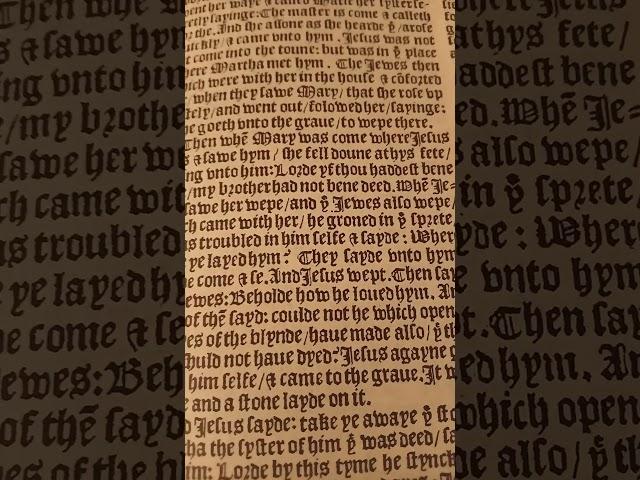 her waye & called
cily sayinge: The master is come & calleth
y the. And she assone as she hearde ẏ/arose
uickly/& came vnto hym. Jesus was not
t come into the toune: but was in ẏ place
here Martha met hym. The Jewes then
ich were with her in the house & cōforted
when they sawe Mary/that she rose vp
tely/and went out/folowed her/sayinge:
he goeth vnto the graue/to wepe there.
Then whē Mary was come where Jesus
s & sawe hym/she fell doune at hys fete/
ng vnto him: Lorde yf thou haddest bene
/my brother had not bene deed. Whē Je=
awe her wepe/and ẏ Jewes also wepe/
h came with her/he groned in ẏ sprete
s troubled in him selfe & sayde: Wher
ye layed hym? They sayde vnto hym
e come & se. And Jesus wept. Then say
ewes: Beholde how he loued hym. An
of thē sayd: coulde not he which open
es of the blynde/haue made also/ẏ th
huld not haue dyed? Jesus agayne g
him selfe/& came to the graue. It w
e and a stone layde on it.
d Jesus sayde: take ye awaye ẏ sto
ha the syster of him ẏ was deed/sa
im: Lorde by this tyme he stynck